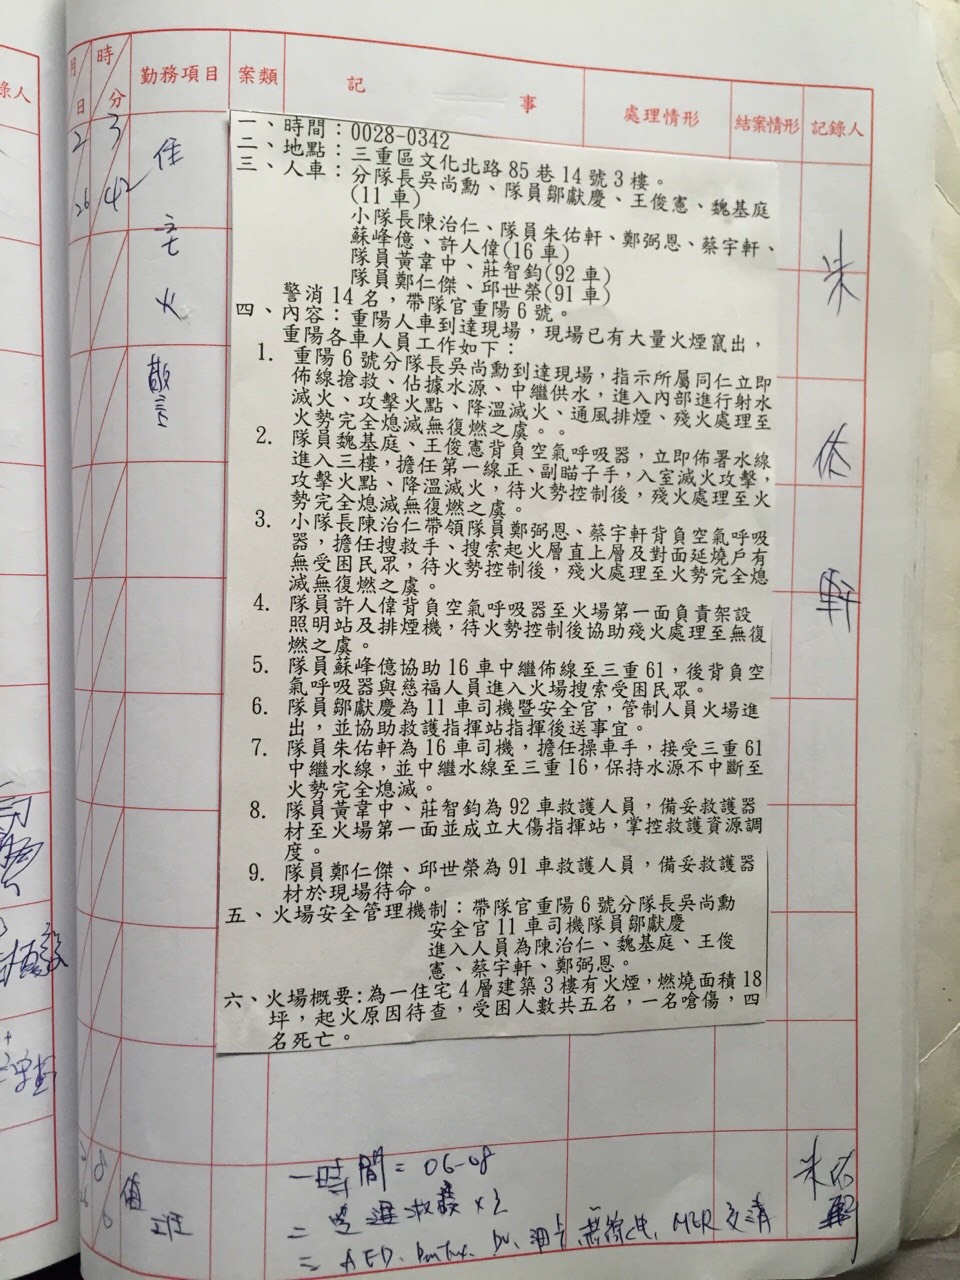 錄人
月 日
時 分
勤務項目
案類
記 事
處理情形
結案情形
記錄人
2 26
3 42
住
宅
火
警
一、時間：0028-0342
二、地點：三重區文化北路85巷14號3樓。
三、人車：分隊長吳尚勳、隊員鄒獻慶、王俊憲、魏基庭
(11車)
小隊長陳治仁、隊員朱佑軒、鄭弼恩、蔡宇軒、
蘇峰億、許人偉(16車)
隊員黃韋中、莊智鈞(92車)
隊員鄭仁傑、邱世榮(91車)
警消14名，帶隊官重陽6號。
四、內容：重陽人車到達現場，現場已有大量火煙竄出，
重陽各車人員工作如下：
1. 重陽6號分隊長吳尚勳到達現場，指示所屬同仁立即
佈線搶救、佔據水源、中繼供水，進入內部進行射水
滅火、攻擊火點、降溫滅火、通風排煙、殘火處理至
火勢完全熄滅無復燃之虞。。
2. 隊員魏基庭、王俊憲背負空氣呼吸器，立即佈署水線
進入三樓，擔任第一線正、副瞄子手，入室滅火攻擊，
攻擊火點、降溫滅火，待火勢控制後，殘火處理至火
勢完全熄滅無復燃之虞。
3. 小隊長陳治仁帶領隊員鄭弼恩、蔡宇軒背負空氣呼吸
器，擔任搜救手、搜索起火層直上層及對面延燒戶有
無受困民眾，待火勢控制後，殘火處理至火勢完全熄
滅無復燃之虞。
4. 隊員許人偉背負空氣呼吸器至火場第一面負責架設
照明站及排煙機，待火勢控制後協助殘火處理至無復
燃之虞。
5. 隊員蘇峰億協助16車中繼佈線至三重61，後背負空
氣呼吸器與慈福人員進入火場搜索受困民眾。
6. 隊員鄒獻慶為11車司機暨安全官，管制人員火場進
出，並協助救護指揮站指揮後送事宜。
7. 隊員朱佑軒為16車司機，擔任操車手，接受三重61
中繼水線，並中繼水線至三重16，保持水源不中斷至
火勢完全熄滅。
8. 隊員黃韋中、莊智鈞為92車救護人員，備妥救護器
材至火場第一面並成立大傷指揮站，掌控救護資源調
度。
9. 隊員鄭仁傑、邱世榮為91車救護人員，備妥救護器
材於現場待命。
五、火場安全管理機制：帶隊官重陽6號分隊長吳尚勳
安全官11車司機隊員鄒獻慶
進入人員為陳治仁、魏基庭、王俊
憲、蔡宇軒、鄭弼恩。
六、火場概要：為一住宅4層建築3樓有火煙，燃燒面積18
坪，起火原因待查，受困人數共五名，一名嗆傷，四
名死亡。
朱
佑
軒
值
班
一時間=06-08
三 AED、
朱佑
軒